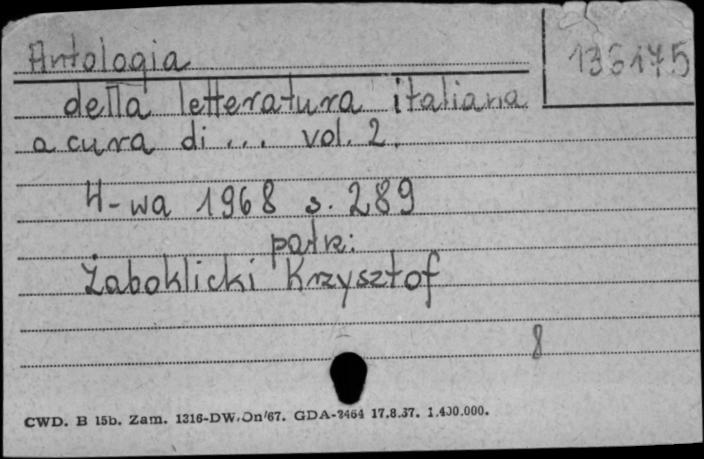 Antologia
136175
della letteratura italiana
a cura di ... vol. 2.
W-wa 1968 s. 289
patrz:
Żaboklicki Krzysztof
8
CWD. B 15b. Zam. 1316-DW.On/67. GDA-2464 17.8.67. 1.400.000.